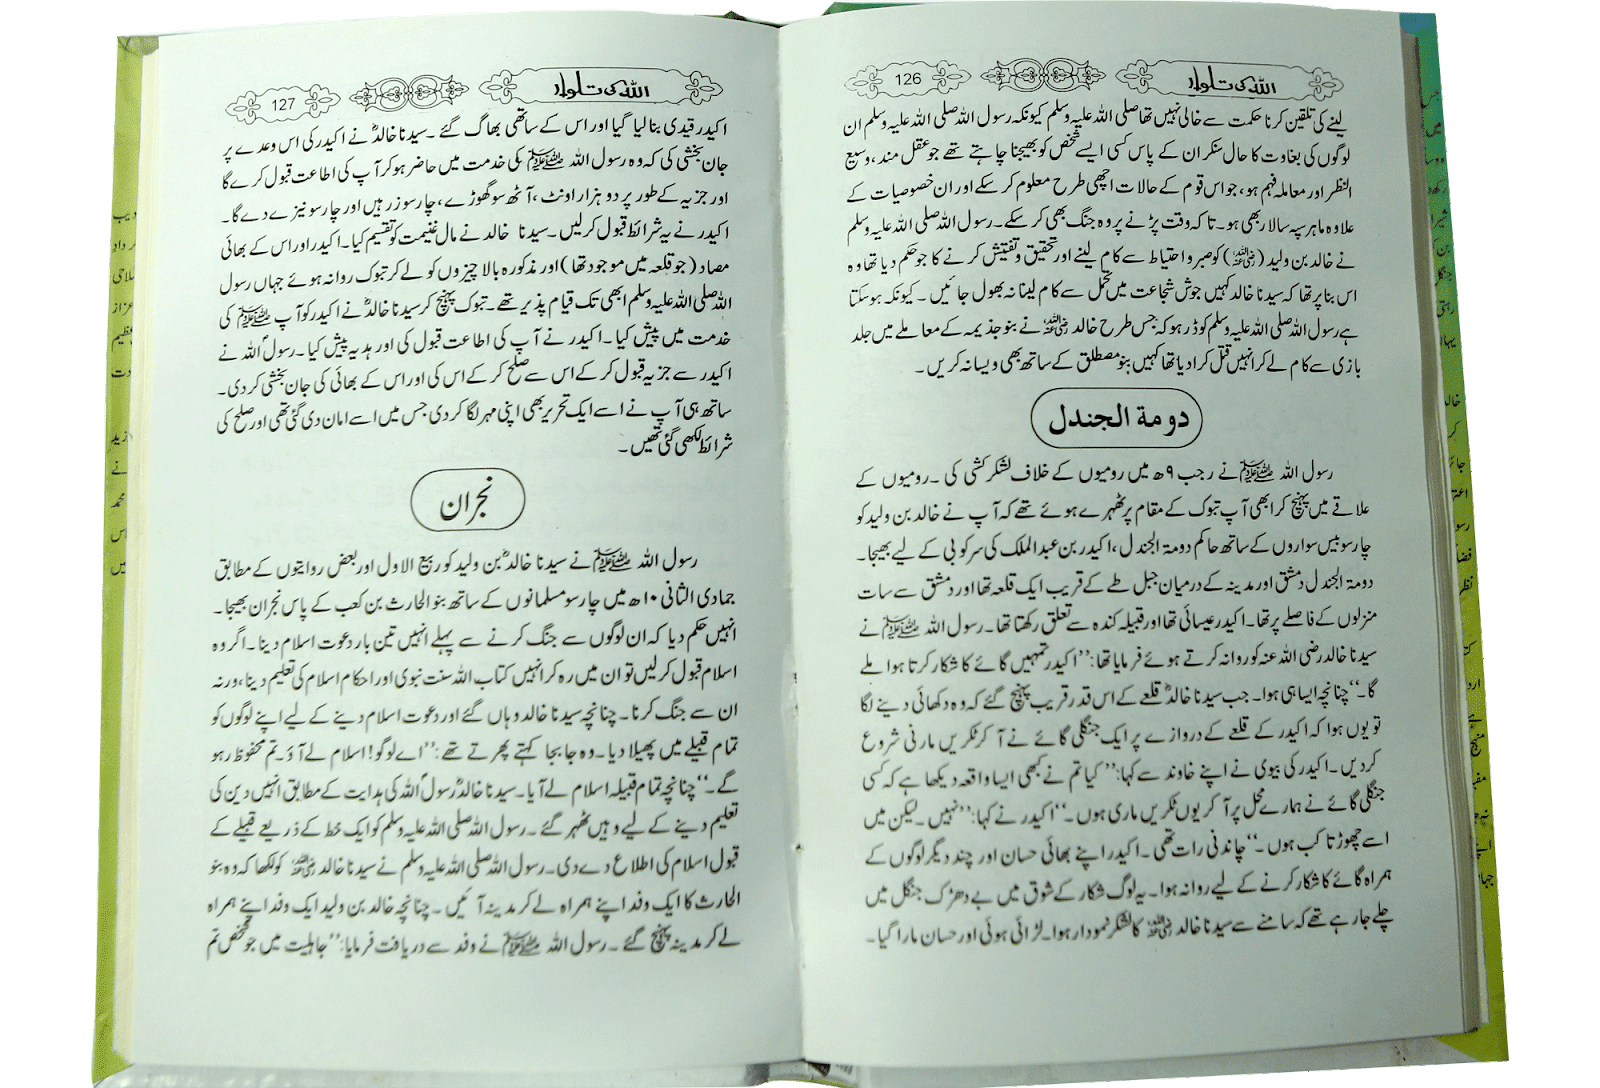 اللہ کی تلوار
126
لینے کی تلقین کرنا حکمت سے خالی نہیں تھا صلی اللہ علیہ وسلم کیونکہ رسول اللہ صلی اللہ علیہ وسلم ان
لوگوں کی بغاوت کا حال سنکر ان کے پاس کسی ایسے شخص کو بھیجنا چاہتے تھے جو عقل مند، وسیع
النظر اور معاملہ فہم ہو، جو اس قوم کے حالات اچھی طرح معلوم کر سکے اور ان خصوصیات کے
علاوہ ماہر سپہ سالار بھی ہو۔ تاکہ وقت پڑنے پر وہ جنگ بھی کر سکے۔ رسول اللہ صلی اللہ علیہ وسلم
نے خالد بن ولید (رضی اللہ عنہ) کو صبر و احتیاط سے کام لینے اور تحقیق و تفتیش کرنے کا جو حکم دیا تھا وہ
اس بنا پر تھا کہ سیدنا خالد کہیں جوش شجاعت میں تحمل سے کام لینا نہ بھول جائیں۔ کیونکہ ہو سکتا
ہے رسول اللہ صلی اللہ علیہ وسلم کو ڈر ہو کہ جس طرح خالد رضی اللہ عنہ نے بنو جذیمہ کے معاملے میں جلد
بازی سے کام لے کر انہیں قتل کرا دیا تھا کہیں بنو مصطلق کے ساتھ بھی ویسا نہ کریں۔
دومة الجندل
رسول اللہ ﷺ نے رجب ۹ھ میں رومیوں کے خلاف لشکر کشی کی۔ رومیوں کے
علاقے میں پہنچ کر ابھی آپ تبوک کے مقام پر ٹھہرے ہوئے تھے کہ آپ نے خالد بن ولید کو
چار سو بیس سواروں کے ساتھ حاکم دومۃ الجندل، اکیدر بن عبدالملک کی سرکوبی کے لیے بھیجا۔
دومۃ الجندل دمشق اور مدینہ کے درمیان جبل طے کے قریب ایک قلعہ تھا اور دمشق سے سات
منزلوں کے فاصلے پر تھا۔ اکیدر عیسائی تھا اور قبیلہ کندہ سے تعلق رکھتا تھا۔ رسول اللہ ﷺ نے
سیدنا خالد رضی اللہ عنہ کو روانہ کرتے ہوئے فرمایا تھا: ”اکیدر تمہیں گائے کا شکار کرتا ہوا ملے
گا۔“ چنانچہ ایسا ہی ہوا۔ جب سیدنا خالدؓ قلعے کے اس قدر قریب پہنچ گئے کہ وہ دکھائی دینے لگا
تو یوں ہوا کہ اکیدر کے قلعے کے دروازے پر ایک جنگلی گائے نے آ کر ٹکریں مارنی شروع
کر دیں۔ اکیدر کی بیوی نے اپنے خاوند سے کہا: ”کیا تم نے کبھی ایسا واقعہ دیکھا ہے کہ کسی
جنگلی گائے نے ہمارے محل پر آ کر یوں ٹکریں ماری ہوں۔“ اکیدر نے کہا: ”نہیں۔ لیکن میں
اسے چھوڑتا کب ہوں۔“ چاندنی رات تھی۔ اکیدر اپنے بھائی حسان اور چند دیگر لوگوں کے
ہمراہ گائے کا شکار کرنے کے لیے روانہ ہوا۔ یہ لوگ شکار کے شوق میں بے دھڑک جنگل میں
چلے جا رہے تھے کہ سامنے سے سیدنا خالد رضی اللہ عنہ کا لشکر نمودار ہوا۔ لڑائی ہوئی اور حسان مارا گیا۔
اللہ کی تلوار
127
اکیدر قیدی بنا لیا گیا اور اس کے ساتھی بھاگ گئے۔ سیدنا خالدؓ نے اکیدر کی اس وعدے پر
جان بخشی کی کہ وہ رسول اللہ ﷺ کی خدمت میں حاضر ہو کر آپ کی اطاعت قبول کرے گا
اور جزیہ کے طور پر دو ہزار اونٹ، آٹھ سو گھوڑے، چار سو زرہیں اور چار سو نیزے دے گا۔
اکیدر نے یہ شرائط قبول کر لیں۔ سیدنا خالد نے مال غنیمت کو تقسیم کیا۔ اکیدر اور اس کے بھائی
مصاد (جو قلعہ میں موجود تھا) اور مذکورہ بالا چیزوں کو لے کر تبوک روانہ ہوئے جہاں رسول
اللہ صلی اللہ علیہ وسلم ابھی تک قیام پذیر تھے۔ تبوک پہنچ کر سیدنا خالدؓ نے اکیدر کو آپ ﷺ کی
خدمت میں پیش کیا۔ اکیدر نے آپ کی اطاعت قبول کی اور ہدیہ پیش کیا۔ رسولؐ اللہ نے
اکیدر سے جزیہ قبول کر کے اس سے صلح کر کے اس کی اور اس کے بھائی کی جان بخشی کر دی۔
ساتھ ہی آپ نے اسے ایک تحریر بھی اپنی مہر لگا کر دی جس میں اسے امان دی گئی تھی اور صلح کی
شرائط لکھی گئی تھیں۔
نجران
رسول اللہ ﷺ نے سیدنا خالدؓ بن ولید کو ربیع الاول اور بعض روایتوں کے مطابق
جمادی الثانی ۱۰ھ میں چار سو مسلمانوں کے ساتھ بنو الحارث بن کعب کے پاس نجران بھیجا۔
انہیں حکم دیا کہ ان لوگوں سے جنگ کرنے سے پہلے انہیں تین بار دعوت اسلام دینا۔ اگر وہ
اسلام قبول کر لیں تو ان میں رہ کر انہیں کتاب اللہ سنت نبوی اور احکام اسلام کی تعلیم دینا، ورنہ
ان سے جنگ کرنا۔ چنانچہ سیدنا خالد وہاں گئے اور دعوت اسلام دینے کے لیے اپنے لوگوں کو
تمام قبیلے میں پھیلا دیا۔ وہ جا بجا کہتے پھرتے تھے: ”اے لوگو! اسلام لے آؤ۔ تم محفوظ رہو
گے۔“ چنانچہ تمام قبیلہ اسلام لے آیا۔ سیدنا خالدؓ رسولؐ اللہ کی ہدایت کے مطابق انہیں دین کی
تعلیم دینے کے لیے وہیں ٹھہر گئے۔ رسول اللہ صلی اللہ علیہ وسلم کو ایک خط کے ذریعے قبیلے کے
قبول اسلام کی اطلاع دے دی۔ رسول اللہ صلی اللہ علیہ وسلم نے سیدنا خالد رضی اللہ عنہ کو لکھا کہ وہ بنو
الحارث کا ایک وفد اپنے ہمراہ لے کر مدینہ آئیں۔ چنانچہ خالد بن ولید ایک وفد اپنے ہمراہ
لے کر مدینہ پہنچ گئے۔ رسول اللہ ﷺ نے وفد سے دریافت فرمایا: ”جاہلیت میں جو شخص تم